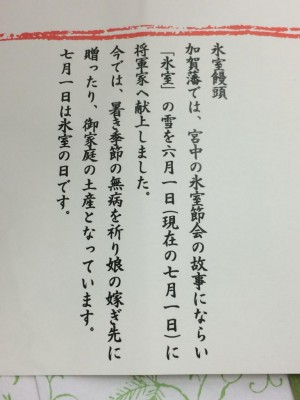 氷室饅頭
加賀藩では、宮中の氷室節会の故事にならい
「氷室」の雪を六月一日(現在の七月一日)に
将軍家へ献上しました。
今では、暑き季節の無病を祈り娘の嫁ぎ先に
贈ったり、御家庭の土産となっています。
七月一日は氷室の日です。